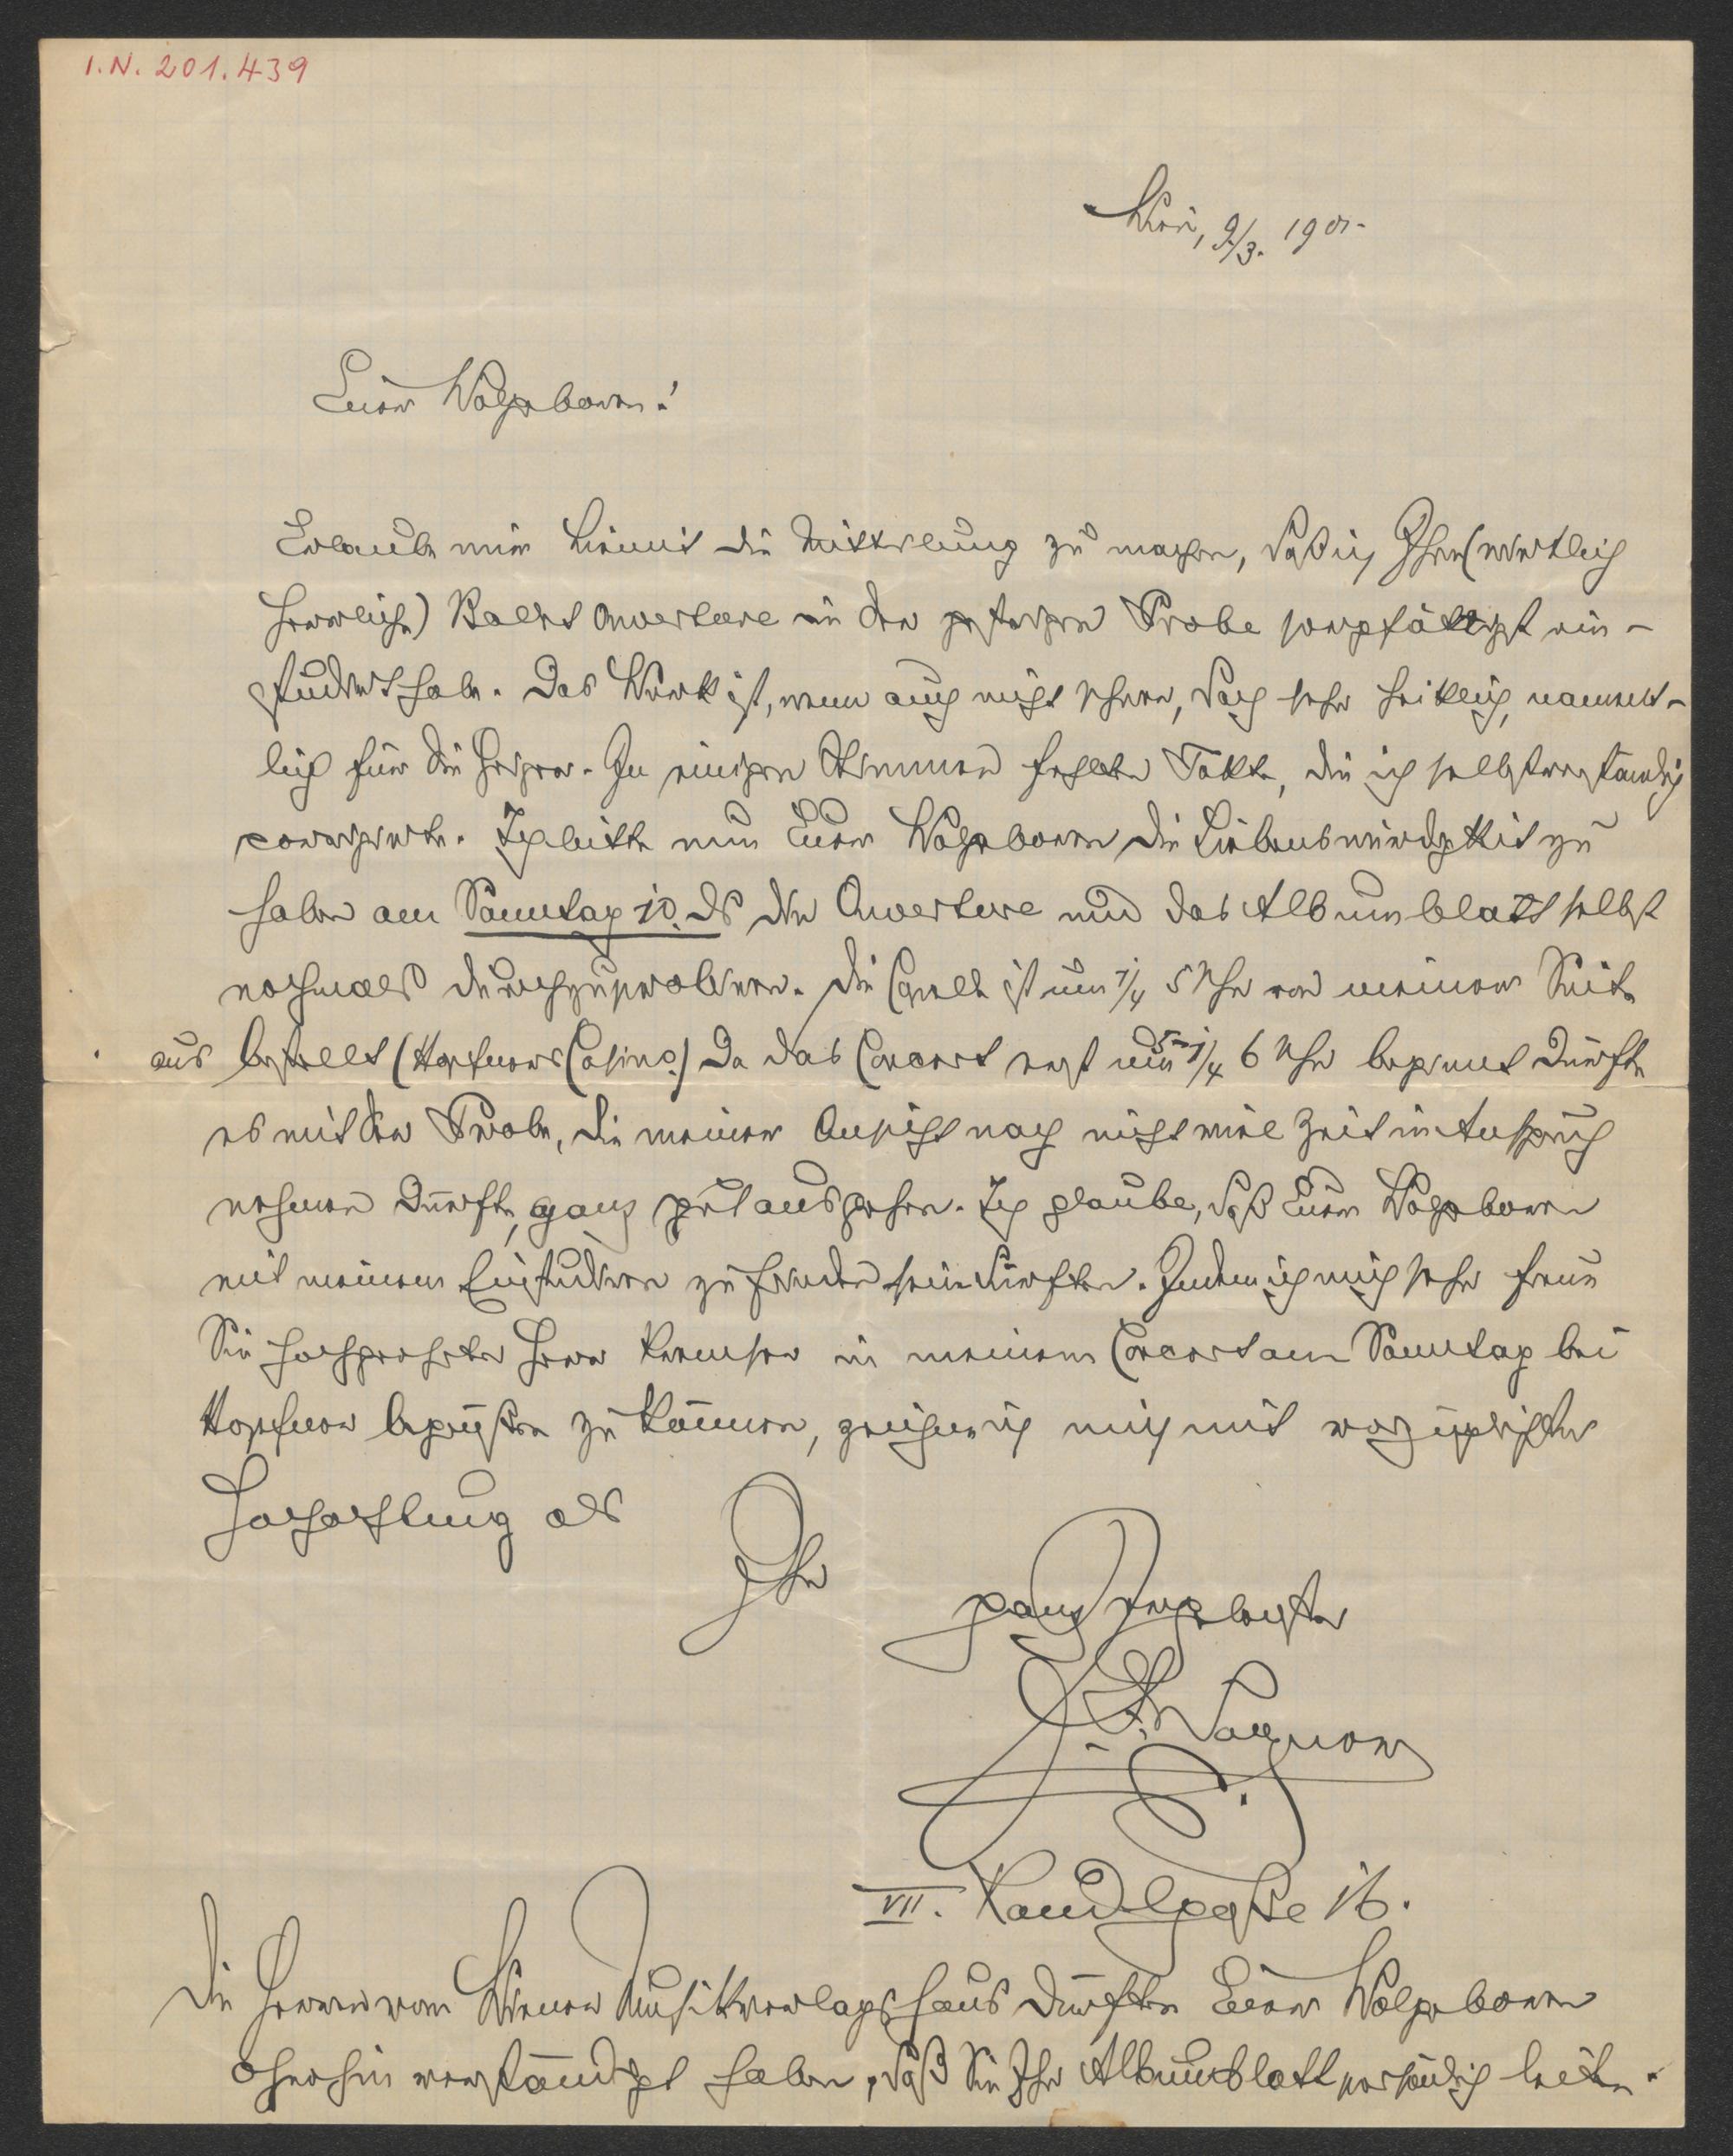 I.N. 201.439
Wien, 9/3. 1901.
Euer Wolgeboren!
Erlaube mir hiemit die Mitteilung zu machen, daß ich Ihre (wirklich
herrliche) Ballet Ouverture in der gestrigen Probe sorgfältigst ein-
studiert habe. Das Werk ist, wenn auch nicht schwer, doch sehr heiklig, nament-
lich für die Geiger. In einigen Stimmen fehlten Takte, die ich selbstverständlich
corrigierte. Ich bitte nun Euer Wolgeboren die Liebenswürdigkeit zu
haben am Sonntag 10. ds die Ouverture und das Albumblatt selbst
nochmals durchzuprobieren. Die Capelle ist um 1/4 5 Uhr von meiner Seite
aus bestellt (Hopfners Casino.) Da das Concert erst um 1/4 6 Uhr beginnt dürfte
es mit der Probe, die meiner Ansicht nach nicht viel Zeit in Anspruch
nehmen dürfte, ganz gut ausgehen. Ich glaube, daß Euer Wolgeboren
mit meinem Einstudieren zufrieden sein dürften. Indem ich mich sehr freue
Sie hochgeehrter Herr Kremser in meinem Concert am Sonntag bei
Hopfner begrüßen zu können, zeichne ich mich mit vorzüglichster
Hochachtung als
Ihr
ganz ergebenster
J. F. Wagner
VII. Kandlgasse 16.
Die Herren vom Wiener Musikverlagshaus dürften Euer Wolgeboren
ohnehin verständigt haben, daß Sie Ihr Albumblatt persönlich leiten.